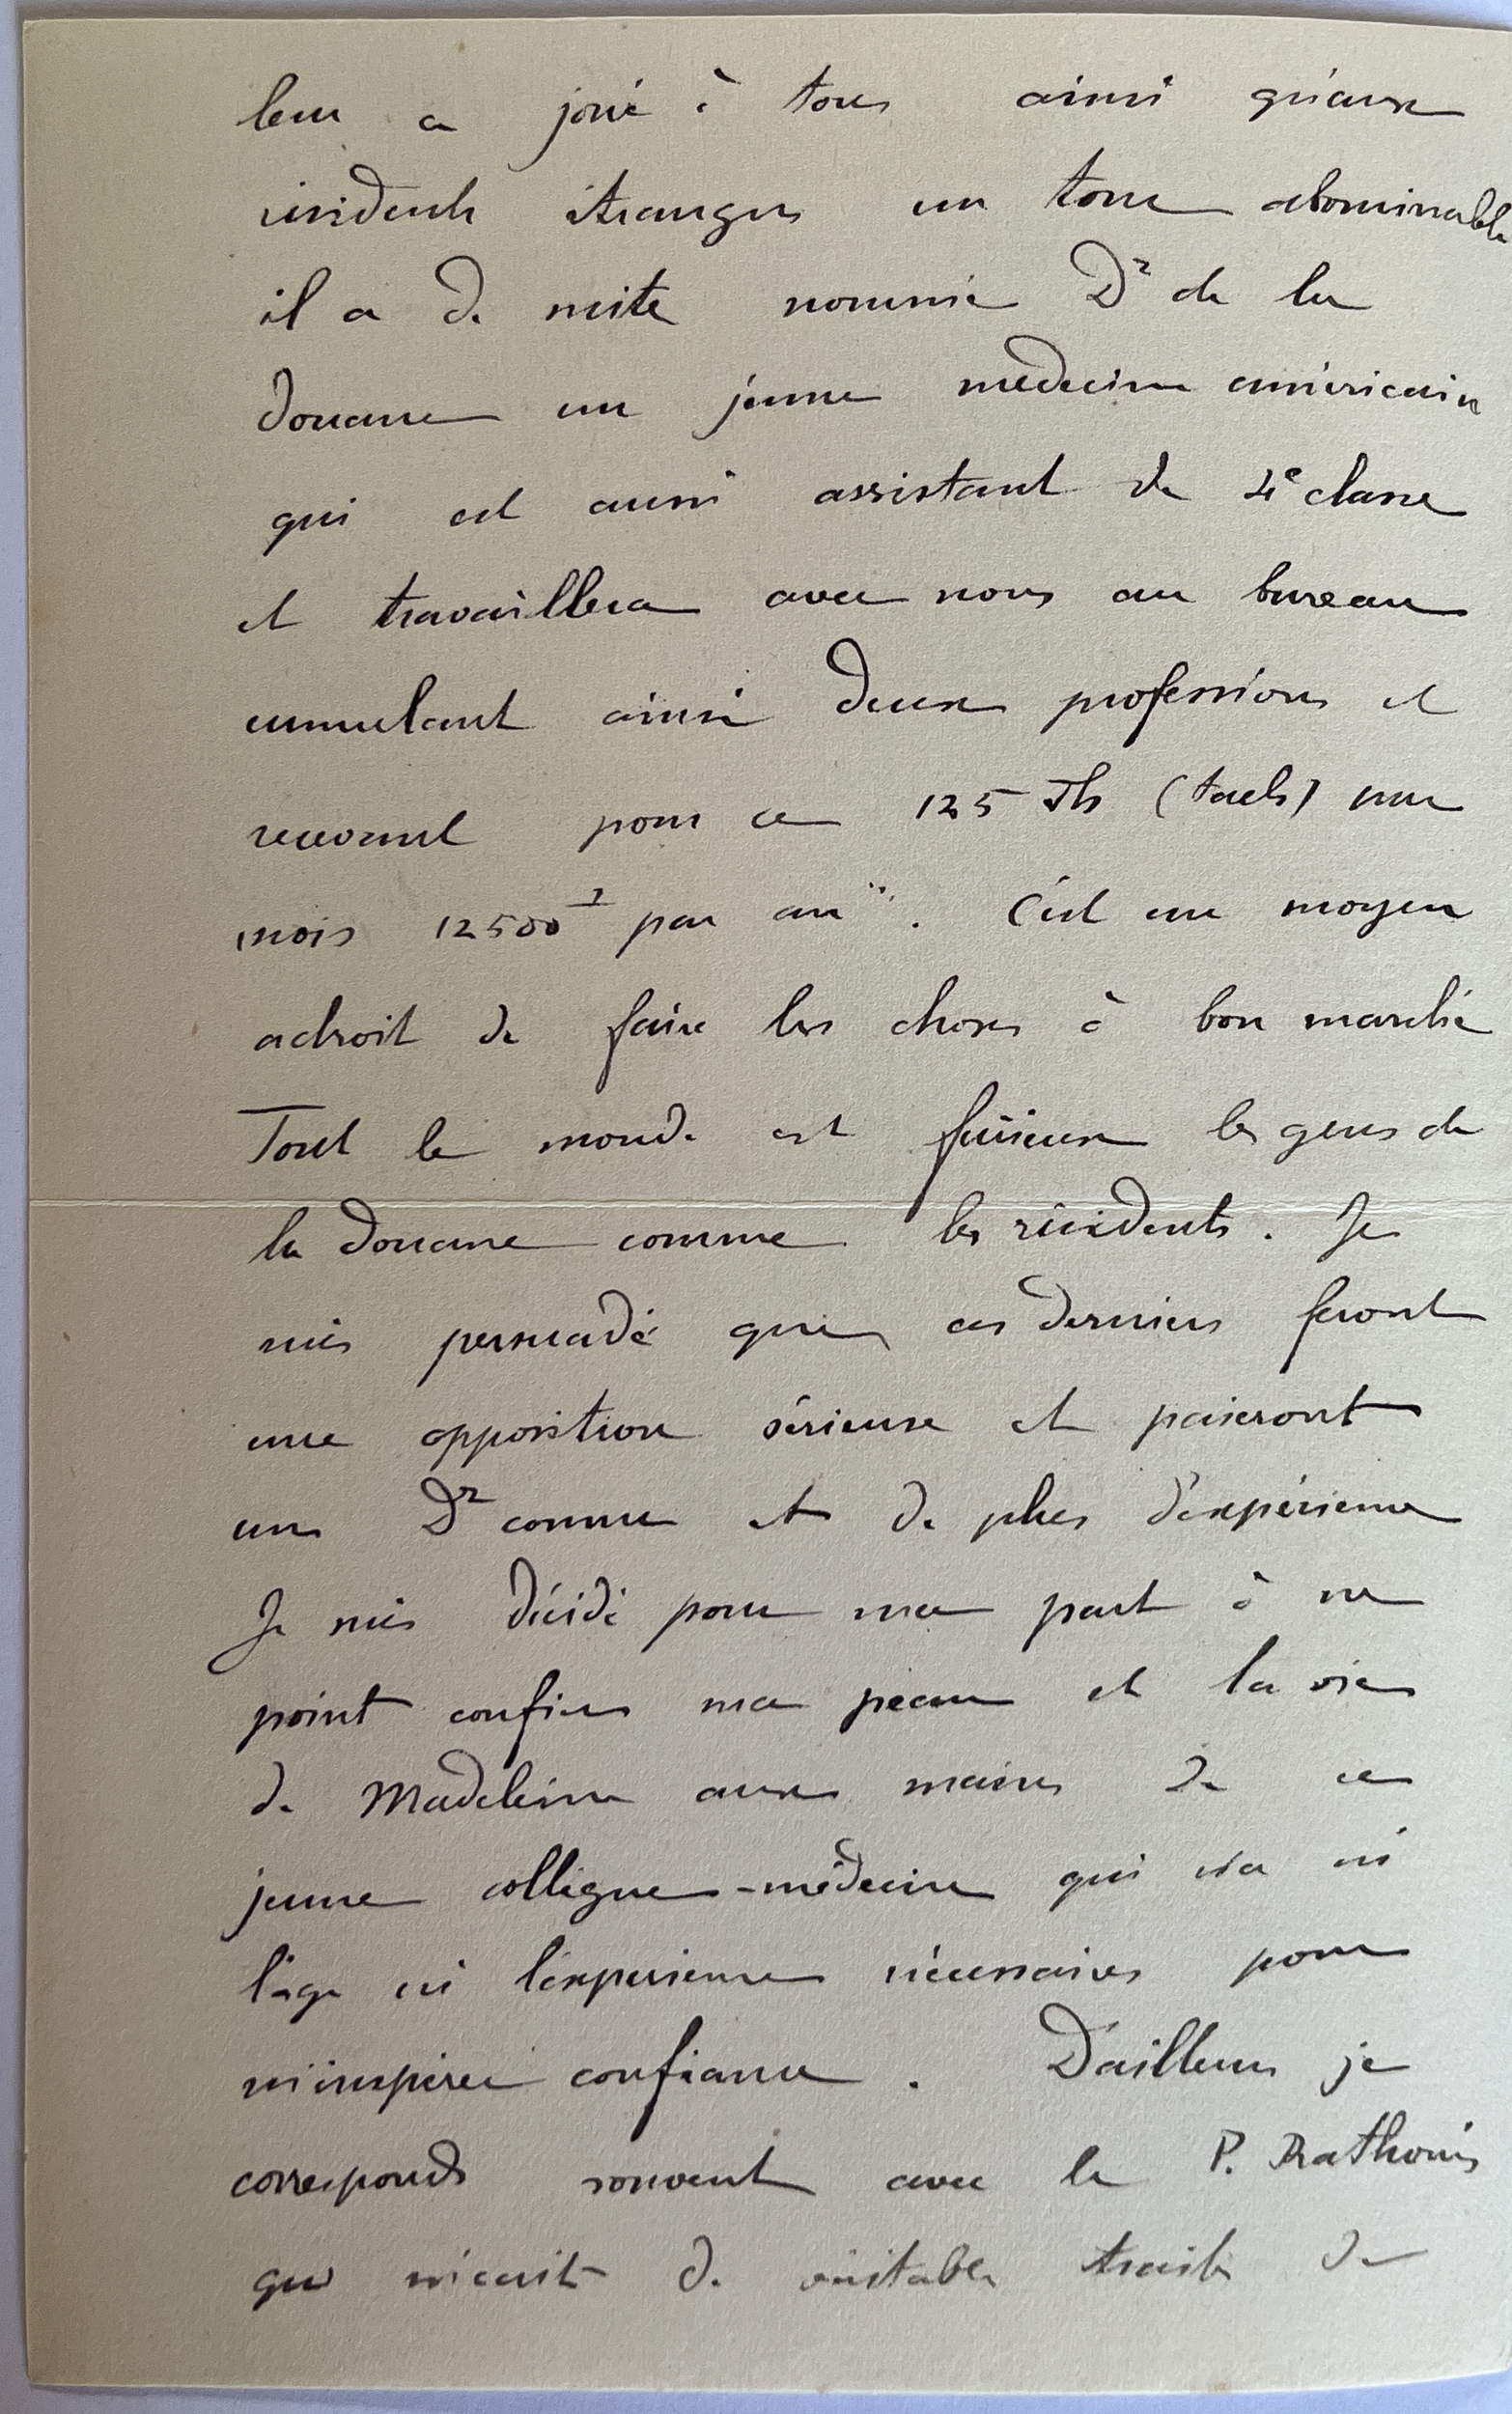 leur a joué à tous ainsi qu'aux
résidents étrangers un tour abominable
il a de suite nommé Dr de la
douane un jeune médecin américain
qui est aussi assistant de 4e classe
et travaillera avec nous au bureau
cumulant ainsi deux professions et
recevant pour ce 125 Tls (taels) par
mois 12500 f par an". C'est un moyen
adroit de faire les choses à bon marché
Tout le monde est furieux les gens de
la douane comme les résidents. Je
suis persuadé que ces derniers feront
une opposition sérieuse et paieront
un Dr connu et de plus d'expérience
Je suis décidé pour ma part à ne
point confier ma peau et la vie
de Madeleine aux mains de ce
jeune collègue-médecin qui n'a ni
l'âge ni l'expérience nécessaires pour
m'inspirer confiance. D'ailleurs je
corresponds souvent avec le P. Rathouis
qui m'écrit de véritables traités de